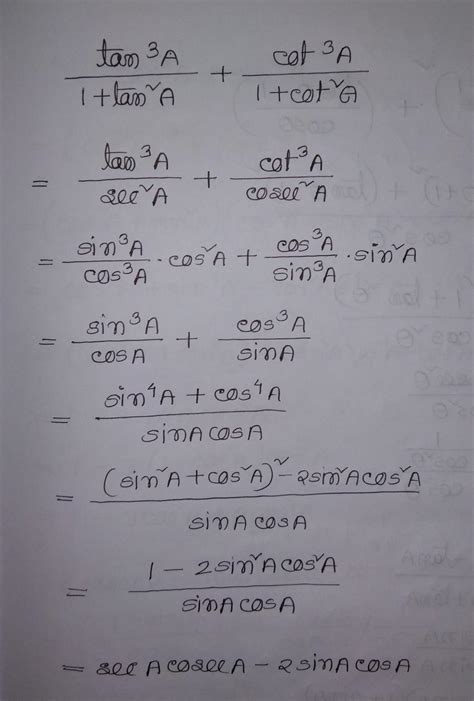 tan³A / 1+tan²A + cot³A / 1+cot²θ
= tan³A / sec²A + cot³A / cosec²A
= sin³A / cos³A · cos²A + cos³A / sin³A · sin²A
= sin³A / cosA + cos³A / sinA
= sin⁴A + cos⁴A / sinA cosA
= (sin²A + cos²A)² - 2sin²A cos²A / sinA cosA
= 1 - 2sin²A cos²A / sinA cosA
= sec A cosec A - 2 sinA cosA